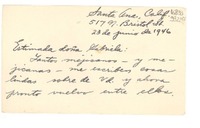 Santa Ana, Calif
517 N. Bristol St.
23 de junio de 1946
Estimada doña Gabriela:
Tantos mejicanos - y me-
jicanas - me escriben cosas
lindas sobre Ud. y ahora
pronto vuelvo entre ellos,